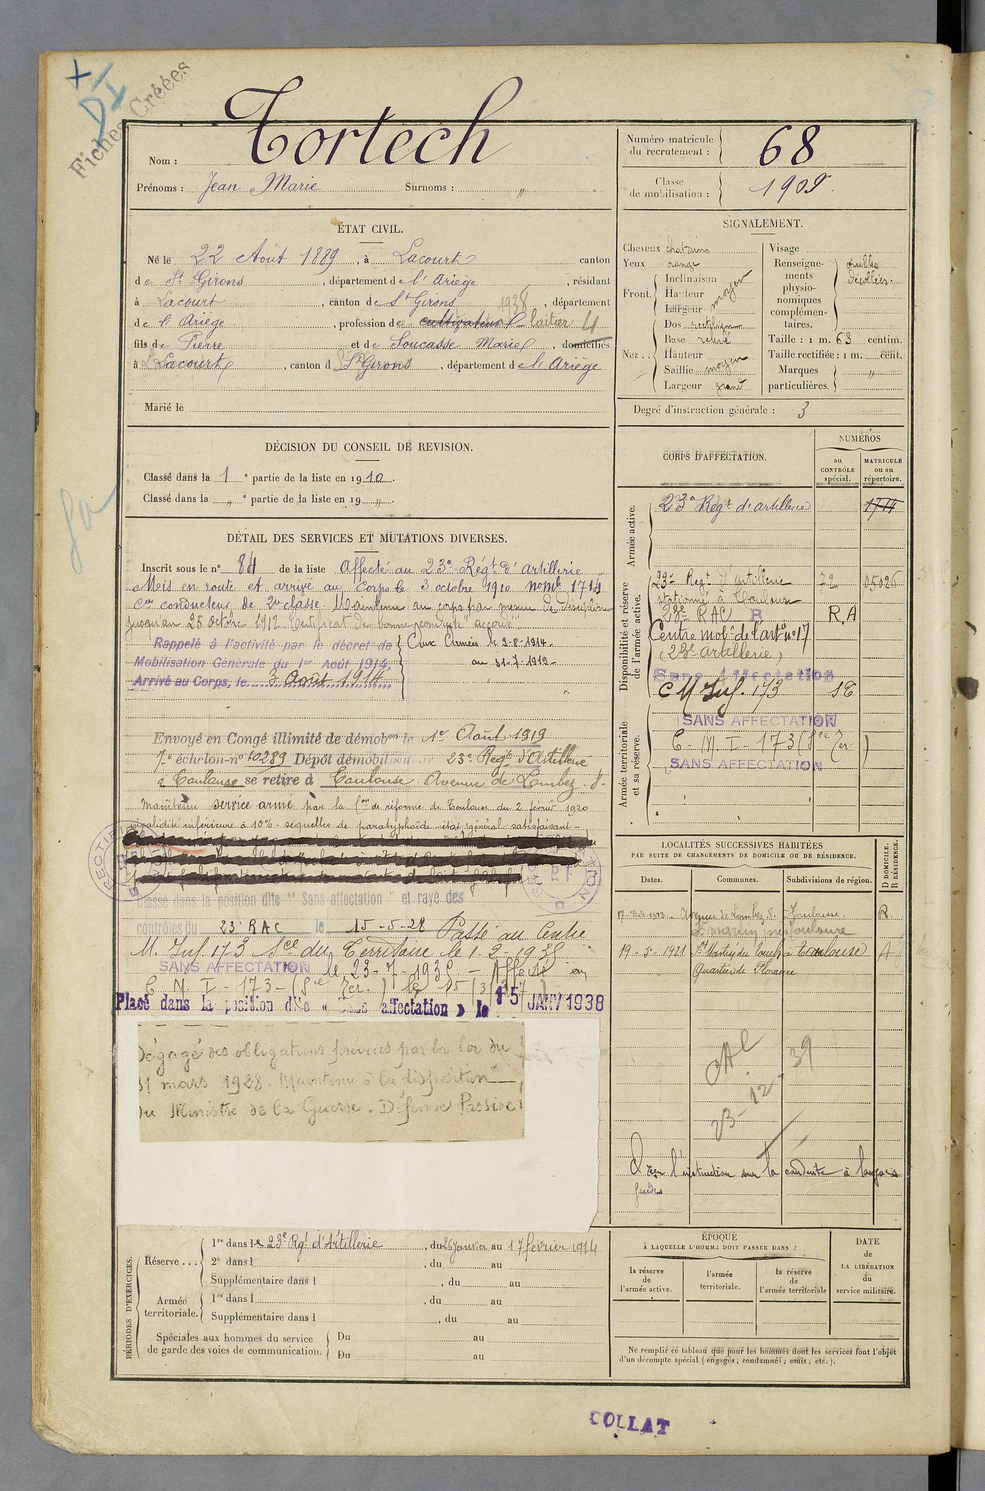 Fiches Créées
Nom : Tortech
Prénoms : Jean Marie Surnoms : "
Numéro matricule du recrutement : 68
Classe de mobilisation : 1909
ÉTAT CIVIL.
Né le 22 Août 1889, à Lacourt canton
de St Girons, département de l'Ariège, résidant
à Lacourt, canton de St Girons 1938, département
de l'Ariège, profession de cultivateur laitier 4
fils de Pierre et de Soucasse Marie, domiciliés
à Lacourt, canton d St Girons, département de l'Ariège
Marié le
SIGNALEMENT.
Cheveux chatains
Yeux orangé
Front. Inclinaison
Hauteur moyen
Largeur
Nez .. Dos rectiligne
Base relevé
Hauteur
Saillie moyen
Largeur grand
Visage
Renseignements physionomiques complémentaires. oreilles décollées.
Taille : 1 m. 63 centim.
Taille rectifiée : 1 m. cent.
Marques particulières. "
Degré d'instruction générale : 3
DÉCISION DU CONSEIL DE REVISION.
Classé dans la 1e partie de la liste en 1910.
Classé dans la " e partie de la liste en 19 "
DÉTAIL DES SERVICES ET MUTATIONS DIVERSES.
Inscrit sous le n° 84 de la liste Affecté au 23e Régt d'Artillerie
Mis en route et arrivé au corps le 3 octobre 1910 n° mle 1714
Cer conducteur de 2e classe. Maintenu au corps par mesure de discipline
jusqu'au 25 octobre 1912. Certificat de bonne conduite "accordé".
Rappelé à l'activité par le décret de
Mobilisation Générale du 1er Août 1914,
Arrivé au Corps, le 3 Août 1914
Aux Armées le 9-8-1914.
au 31-7-1919-
Envoyé en Congé illimité de démobon le 1er Août 1919
7e échelon-n° 10289 Dépôt démobilisateur 23e Régt d'Artillerie
à Toulouse se retire à Toulouse. Avenue de Lombez. 8-
Maintenu service armé par la Con de réforme de Toulouse du 2 février 1920
invalidité inférieure à 10% - séquelles de paratyphoïde - état général satisfaisant -
Classé dans la position dite "Sans affectation" et rayé des
contrôles du 23 RAC le 15-5-28 Passé au Centre
M. Inf. 173 Sce du Territoire le 1-2-1935
SANS AFFECTATION le 23-7-1935 - Affecté au
C. M. I - 173 -
Placé dans la position dite « Sans affectation » le 15 JANV 1938
Dégagé des obligations prévues par la loi du
31 mars 1928. Maintenu à la disposition
du Ministre de la Guerre - Défense Passive
CORPS D'AFFECTATION.
NUMÉROS
au CONTRÔLE spécial.
MATRICULE ou au répertoire.
Armée active.
23e Régt d'artillerie 1714
Disponibilité et réserve de l'armée active.
23e Régt d'Artillerie
stationné à Toulouse
23e RAC R R,A
Centre mobon de l'arto n° 17
(23e artillerie)
Sans Affectation
C M Inf. 173
SANS AFFECTATION
Armée territoriale et sa réserve.
C - M. I - 173
SANS AFFECTATION
LOCALITÉS SUCCESSIVES HABITÉES
PAR SUITE DE CHANGEMENTS DE DOMICILE OU DE RÉSIDENCE.
Dates. Communes. Subdivisions de région. D DOMICILE. R RÉSIDENCE.
Avenue de Lombez 8. Toulouse. R.
St Martin près Toulouse
19-5-1921 St Martin du Touch à Toulouse
Quartier de
23-12-39
Reçu l'instruction sur la conduite à
PÉRIODES D'EXERCICES.
Réserve ... 1re dans le 23e Rgt d'Artillerie, du 26 janvier au 17 février 1914
2e dans l , du au
Supplémentaire dans l , du au
Armée territoriale. 1re dans l , du au
Supplémentaire dans l , du au
Spéciales aux hommes du service de garde des voies de communication. Du au
Du au
ÉPOQUE
À LAQUELLE L'HOMME DOIT PASSER DANS :
la réserve de l'armée active.
l'armée territoriale.
la réserve de l'armée territoriale
DATE de LA LIBÉRATION du service militaire.
Ne remplir ce tableau que pour les hommes dont les services font l'objet
d'un décompte spécial (engagés ; condamnés ; omis ; etc.).
COLLAT